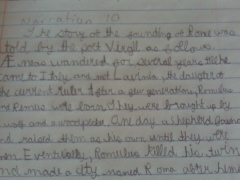 Narration 10
The story of the founding of Rome was
told by the poet Virgil as follows.
Æneas wandered for several years till he
came to Italy and met Lavinia, the daughter of
the current ruler. After a few generations, Romulus
and Remus were born. They were brought up by
wolf and a woodpecker. One day a shepherd found
and raised them as his own until they were
men. Eventually, Romulus killed his twin
and made a city named Roma after him